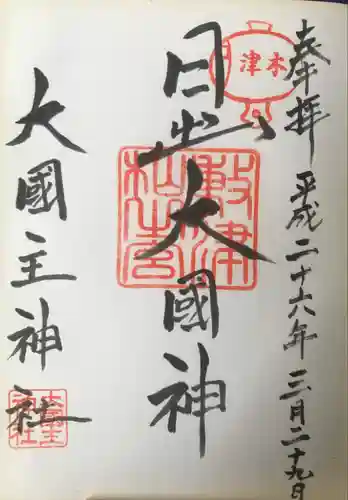 奉拝
平成二十六年三月二十九日
木津
日出大國神
敷津松之宮
大國主神社